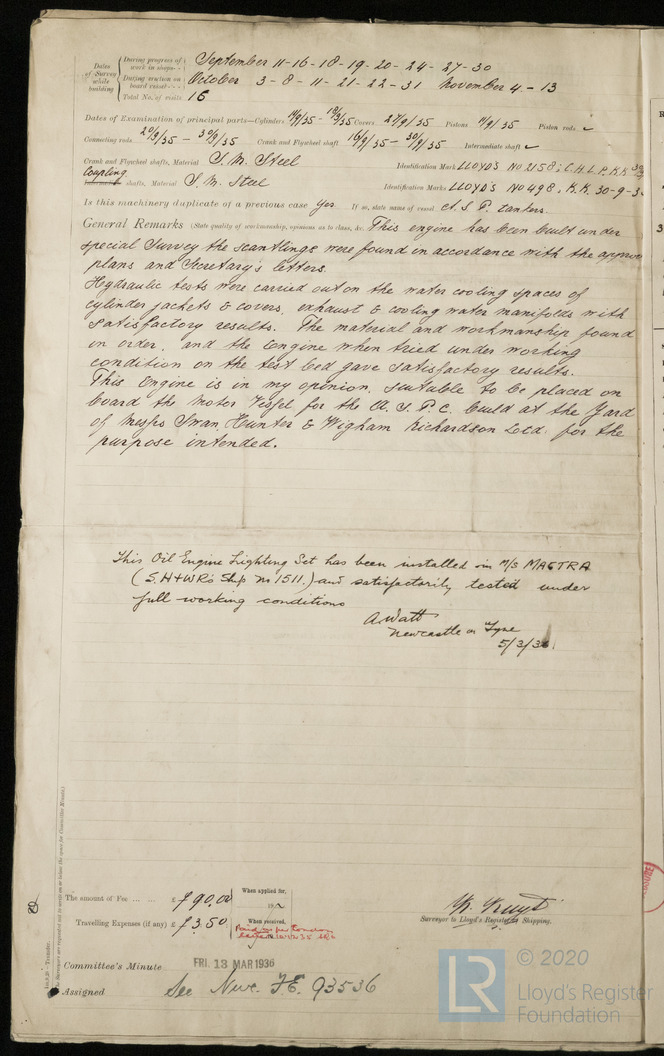 Dates of Survey while building
During progress of work in shops - -
September 11-16-18-19-20-24-27-30
During erection on board vessel - - -
October 3-8-11-21-22-31 November 4-13
Total No. of visits 16
Dates of Examination of principal parts—Cylinders Covers 27/9/35 Pistons 11/9/35 Piston rods ✓
Connecting rods 20/9/35 – 30/9/35 Crank and Flywheel shafts 16/9/35 – 30/9/35 Intermediate shafts ✓
Crank and Flywheel shafts, Material S.M. Steel Identification Mark LLOYD'S No 2158; C.H.L.P. K.K.
Coupling shafts, Material S.M. Steel Identification Marks LLOYD'S No 498, K.K. 30-9-3
Is this machinery duplicate of a previous case yes If so, state name of vessel A.S.P. tankers.
General Remarks (State quality of workmanship, opinions as to class, &c. This engine has been built under
special survey the scantlings were found in accordance with the approv
plans and Secretary's letters.
Hydraulic tests were carried out on the water cooling spaces of
cylinder jackets & covers, exhaust & cooling water manifolds with
satisfactory results. The material and workmanship found
in order, and the Engine when tried under working
condition on the test bed gave satisfactory results.
This Engine is in my opinion, suitable to be placed on
board the Motor Vessel for the A.S.P.C. build at the Yard
of Messrs Swan, Hunter & Wigham Richardson Ltd. for the
purpose intended.
This Oil Engine Lighting Set has been installed in M/S MACTRA
(S.H & WR's Ship No 1511.) and satisfactorily tested under
full working conditions
A Watt
Newcastle on Tyne
5/3/36
The amount of Fee ... ... £ f 90,00 When applied for, 19
Travelling Expenses (if any) £ f 3,50 When received,
Paid as per London
K. Kuyt
Surveyor to Lloyd's Register of Shipping.
Committee's Minute FRI. 13 MAR 1936
Assigned See Nwc. F.E. 93536
© 2020
LR Lloyd's Register
Foundation